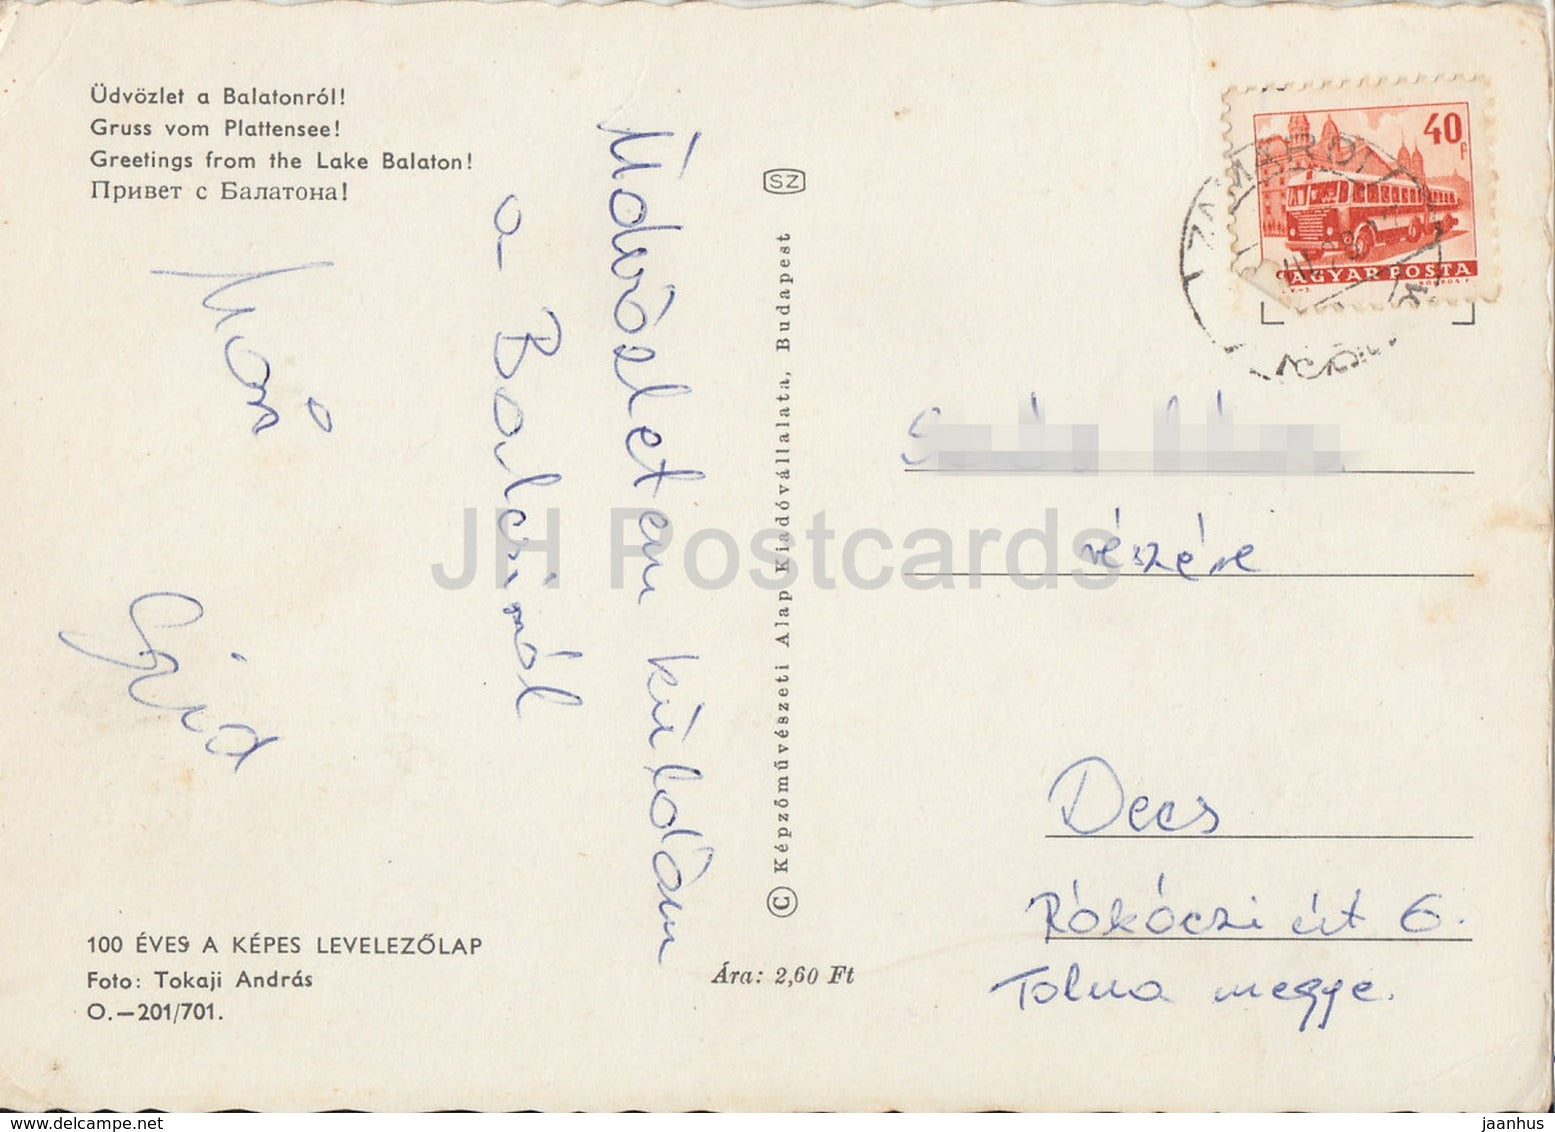 Üdvözlet a Balatonról!
Gruss vom Plattensee!
Greetings from the Lake Balaton!
Привет с Балатона!
Üdvözletem küldöm
a Balcsinól
100 ÉVES A KÉPES LEVELEZŐLAP
Foto: Tokaji András
O.—201/701.
SZ
© Képzőművészeti Alap Kiadóvállalata, Budapest
Ára: 2,60 Ft
40 F
MAGYAR POSTA
ZAMÁRDI
részére
Decs
Rákóczi út 6.
Tolna megye.
JH Postcards
www.delcampe.net
jaanhus